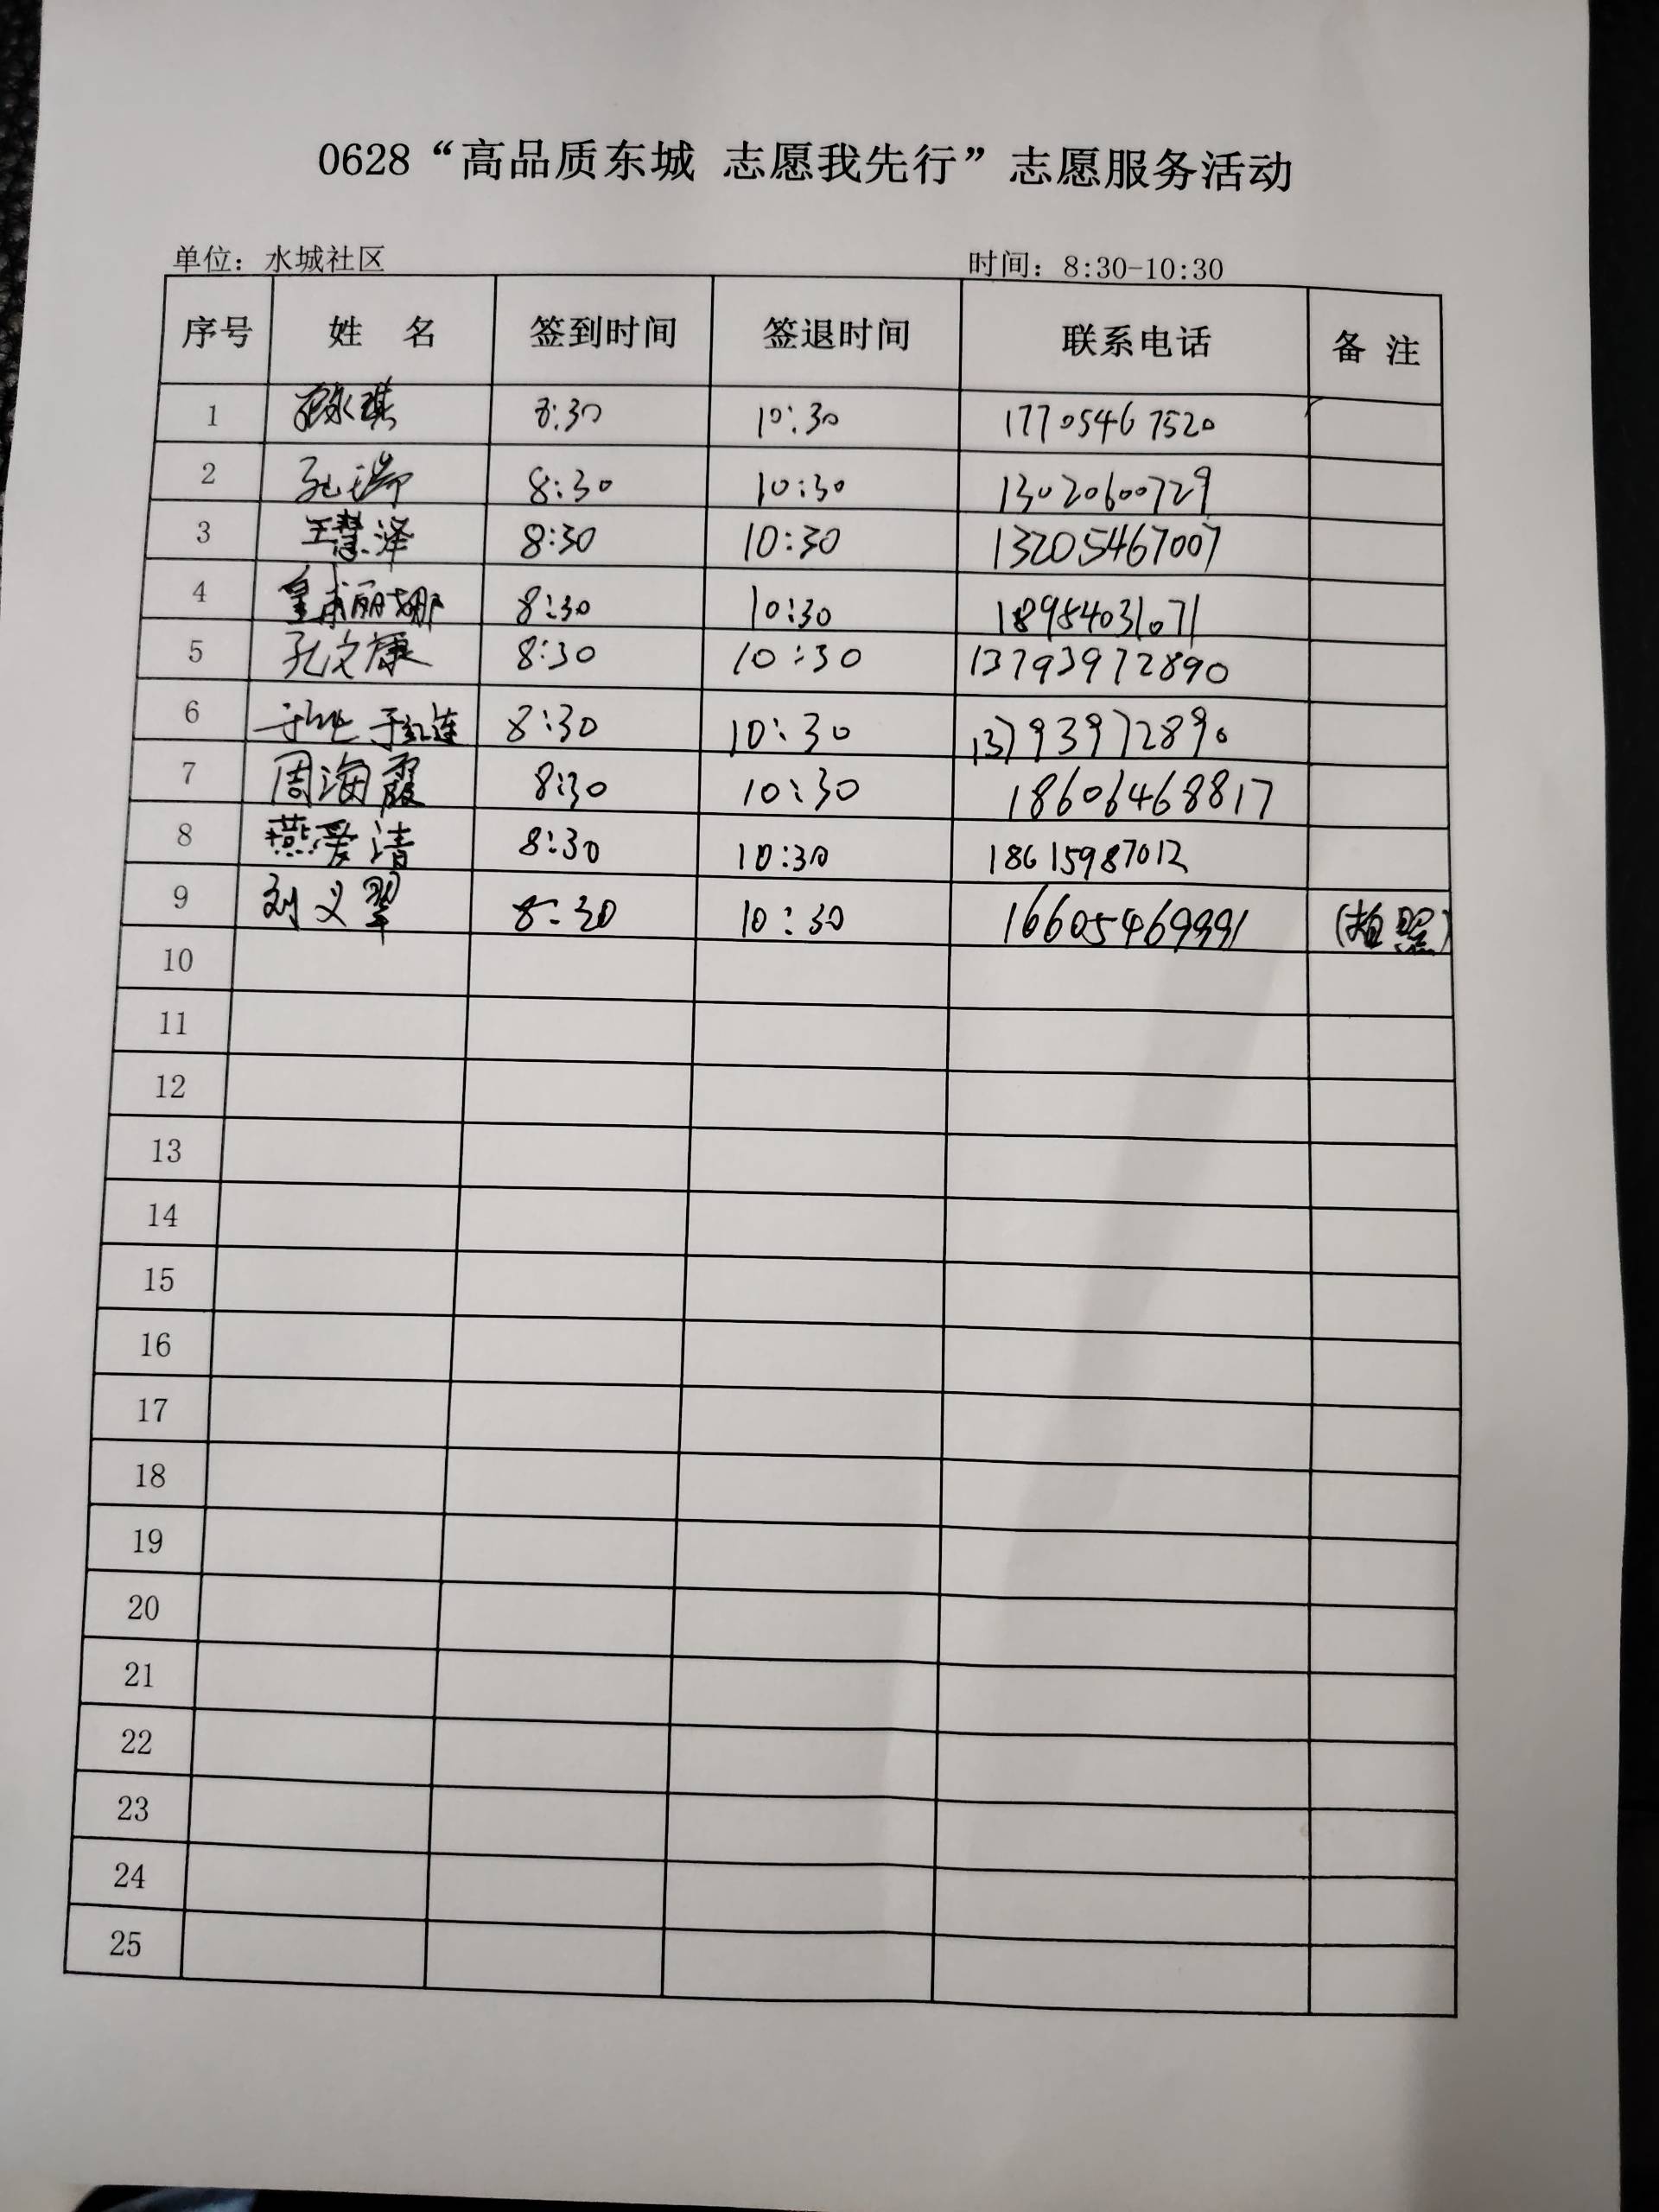 0628“高品质东城 志愿我先行”志愿服务活动
单位：水城社区 时间：8:30-10:30
序号 姓 名 签到时间 签退时间 联系电话 备 注
1 8:30 10:30 17705467520
2 孔瑞 8:30 10:30 13020600729
3 王慧泽 8:30 10:30 13205467007
4 皇甫丽娜 8:30 10:30 18954031071
5 孔文康 8:30 10:30 13793972890
6 于红连 8:30 10:30 13793972890
7 周海霞 8:30 10:30 18606468817
8 燕爱洁 8:30 10:30 18615987012
9 刘义翠 8:30 10:30 16605469991 (拍照)
10
11
12
13
14
15
16
17
18
19
20
21
22
23
24
25